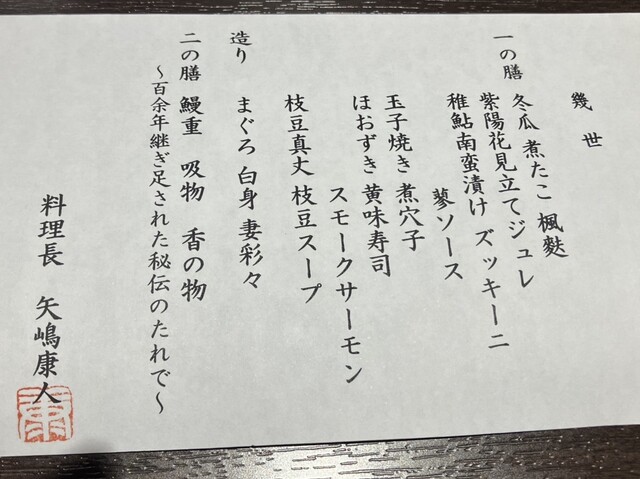 幾世
一の膳 冬瓜 煮たこ 楓麩
紫陽花見立てジュレ
稚鮎南蛮漬け ズッキーニ
蓼ソース
玉子焼き 煮穴子
ほおずき 黄味寿司
スモークサーモン
枝豆真丈 枝豆スープ
造り まぐろ 白身 妻彩々
二の膳 鰻重 吸物 香の物
～百余年継ぎ足された秘伝のたれで～
料理長 矢嶋康人